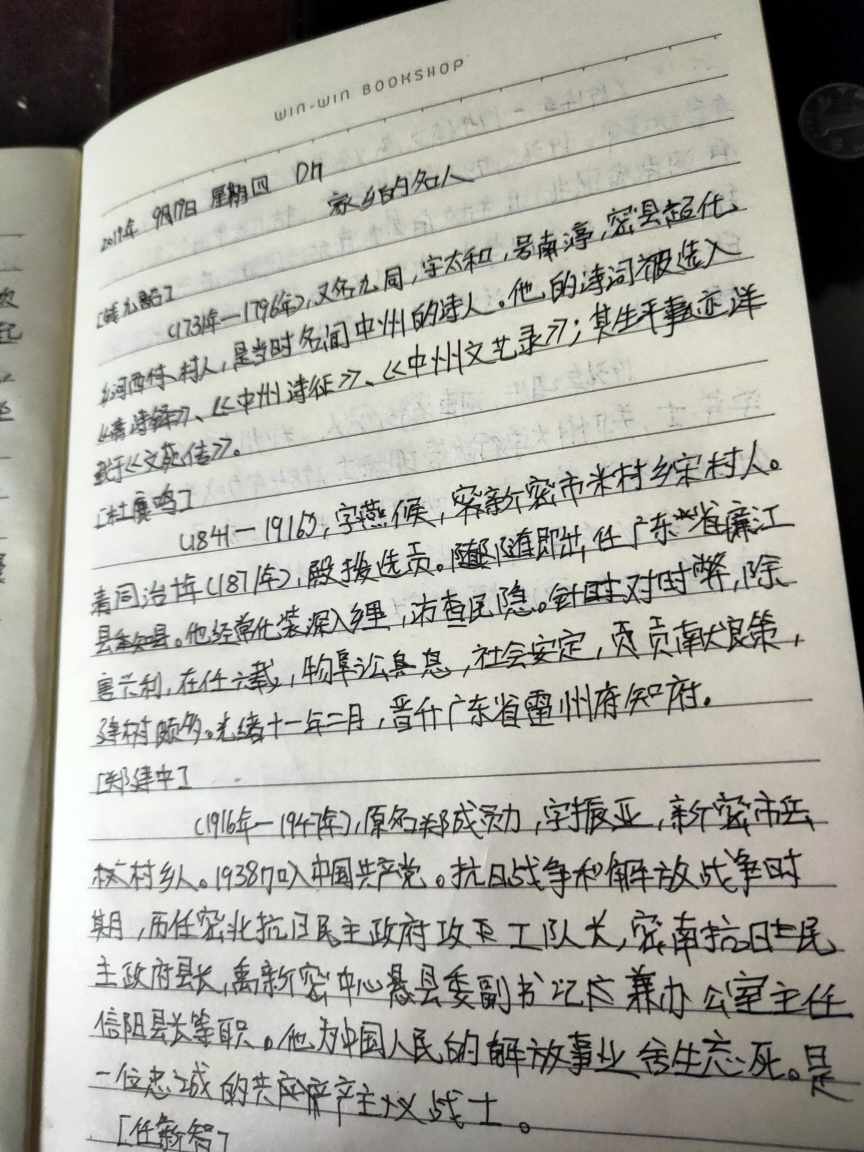 WIN-WIN BOOKSHOP
2019年 9月17日 星期四
家乡的名人
(1731年—1796年),又名九同,字太和,号南淳,密县超化、
河西村人,是当时名闻中州的诗人。他的诗词被选入
《清诗铎》、《中州诗征》、《中州文艺录》;其生平事迹详
于《文苑传》。
[杜鹿鸣]
(1841—1916),字燕侯,新密市米村乡宋村人。
清同治年(1871年),殿拔选贡。随即出任广东省廉江
县知县。他经常化装深入乡里,访查民隐。针对时弊,除
害兴利,在任六载,物阜讼息,社会安定,贡献良策,
建树颇多。光绪十一年二月,晋升广东省雷州府知府。
[郑建中]
(1916年—1947年),原名郑成勋,字振亚,新密市岳
村乡人。1938加入中国共产党。抗日战争和解放战争时
期,历任密北抗日民主政府攻工队长,密南抗日民
主政府县长,禹新密中心县委副书记兼办公室主任
信阳县长等职。他为中国人民的解放事业舍生忘死。是
一位忠诚的共产主义战士。
[任新智]